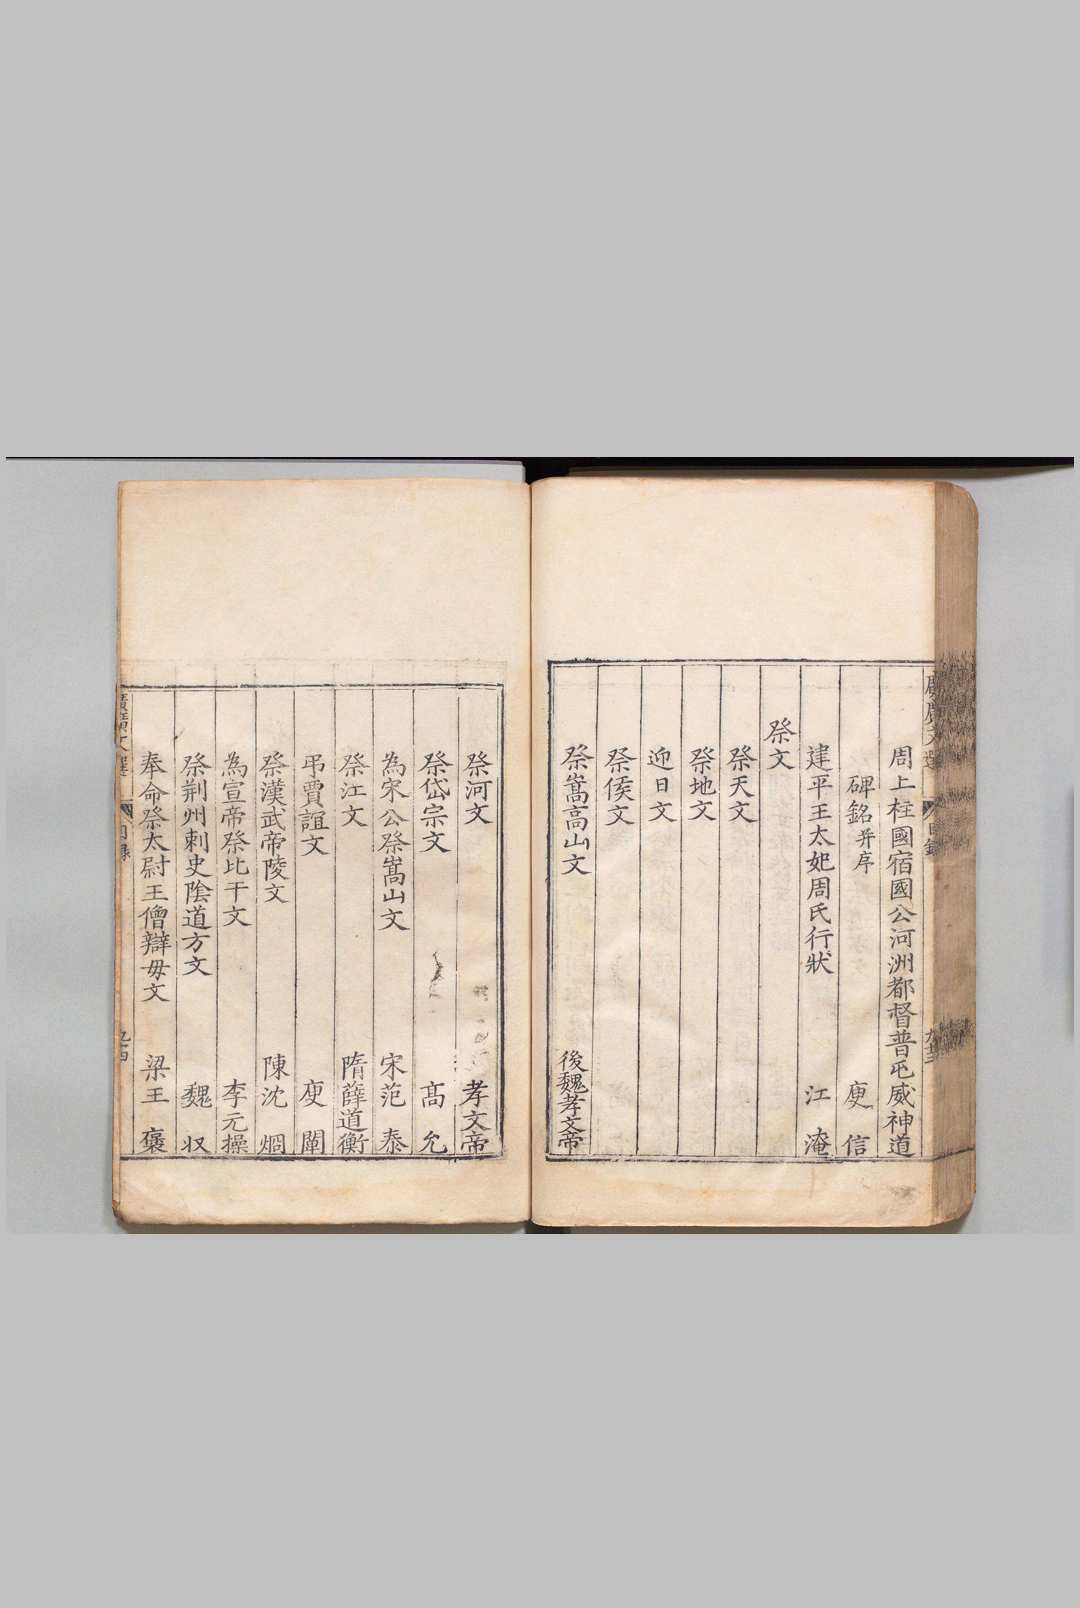 周上柱國宿國公河洲都督普屯威神道
碑銘并序 庾信
建平王太妃周氏行狀 江淹
祭文
祭天文
祭地文
迎日文
祭侯文
祭嵩高山文 後魏孝文帝
祭河文 孝文帝
祭岱宗文 高允
為宋公祭嵩山文 宋范泰
祭江文 隋薛道衡
弔賈誼文 庾闡
祭漢武帝陵文 陳沈烱
為宣帝祭比干文 李元操
祭荆州刺史陰道方文 魏收
奉命祭太尉王僧辯毋文 梁王褒
目录
九十四